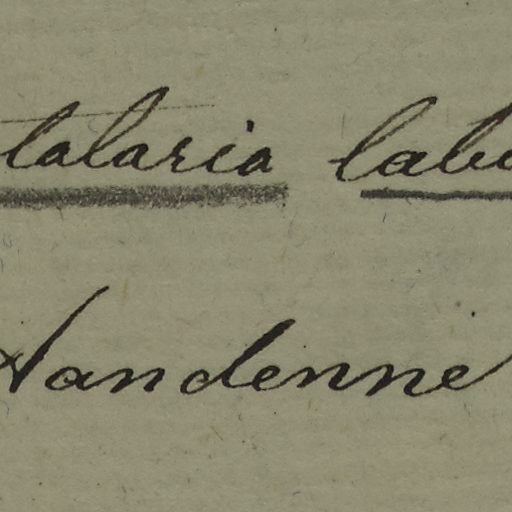 talaria labu
Handenne